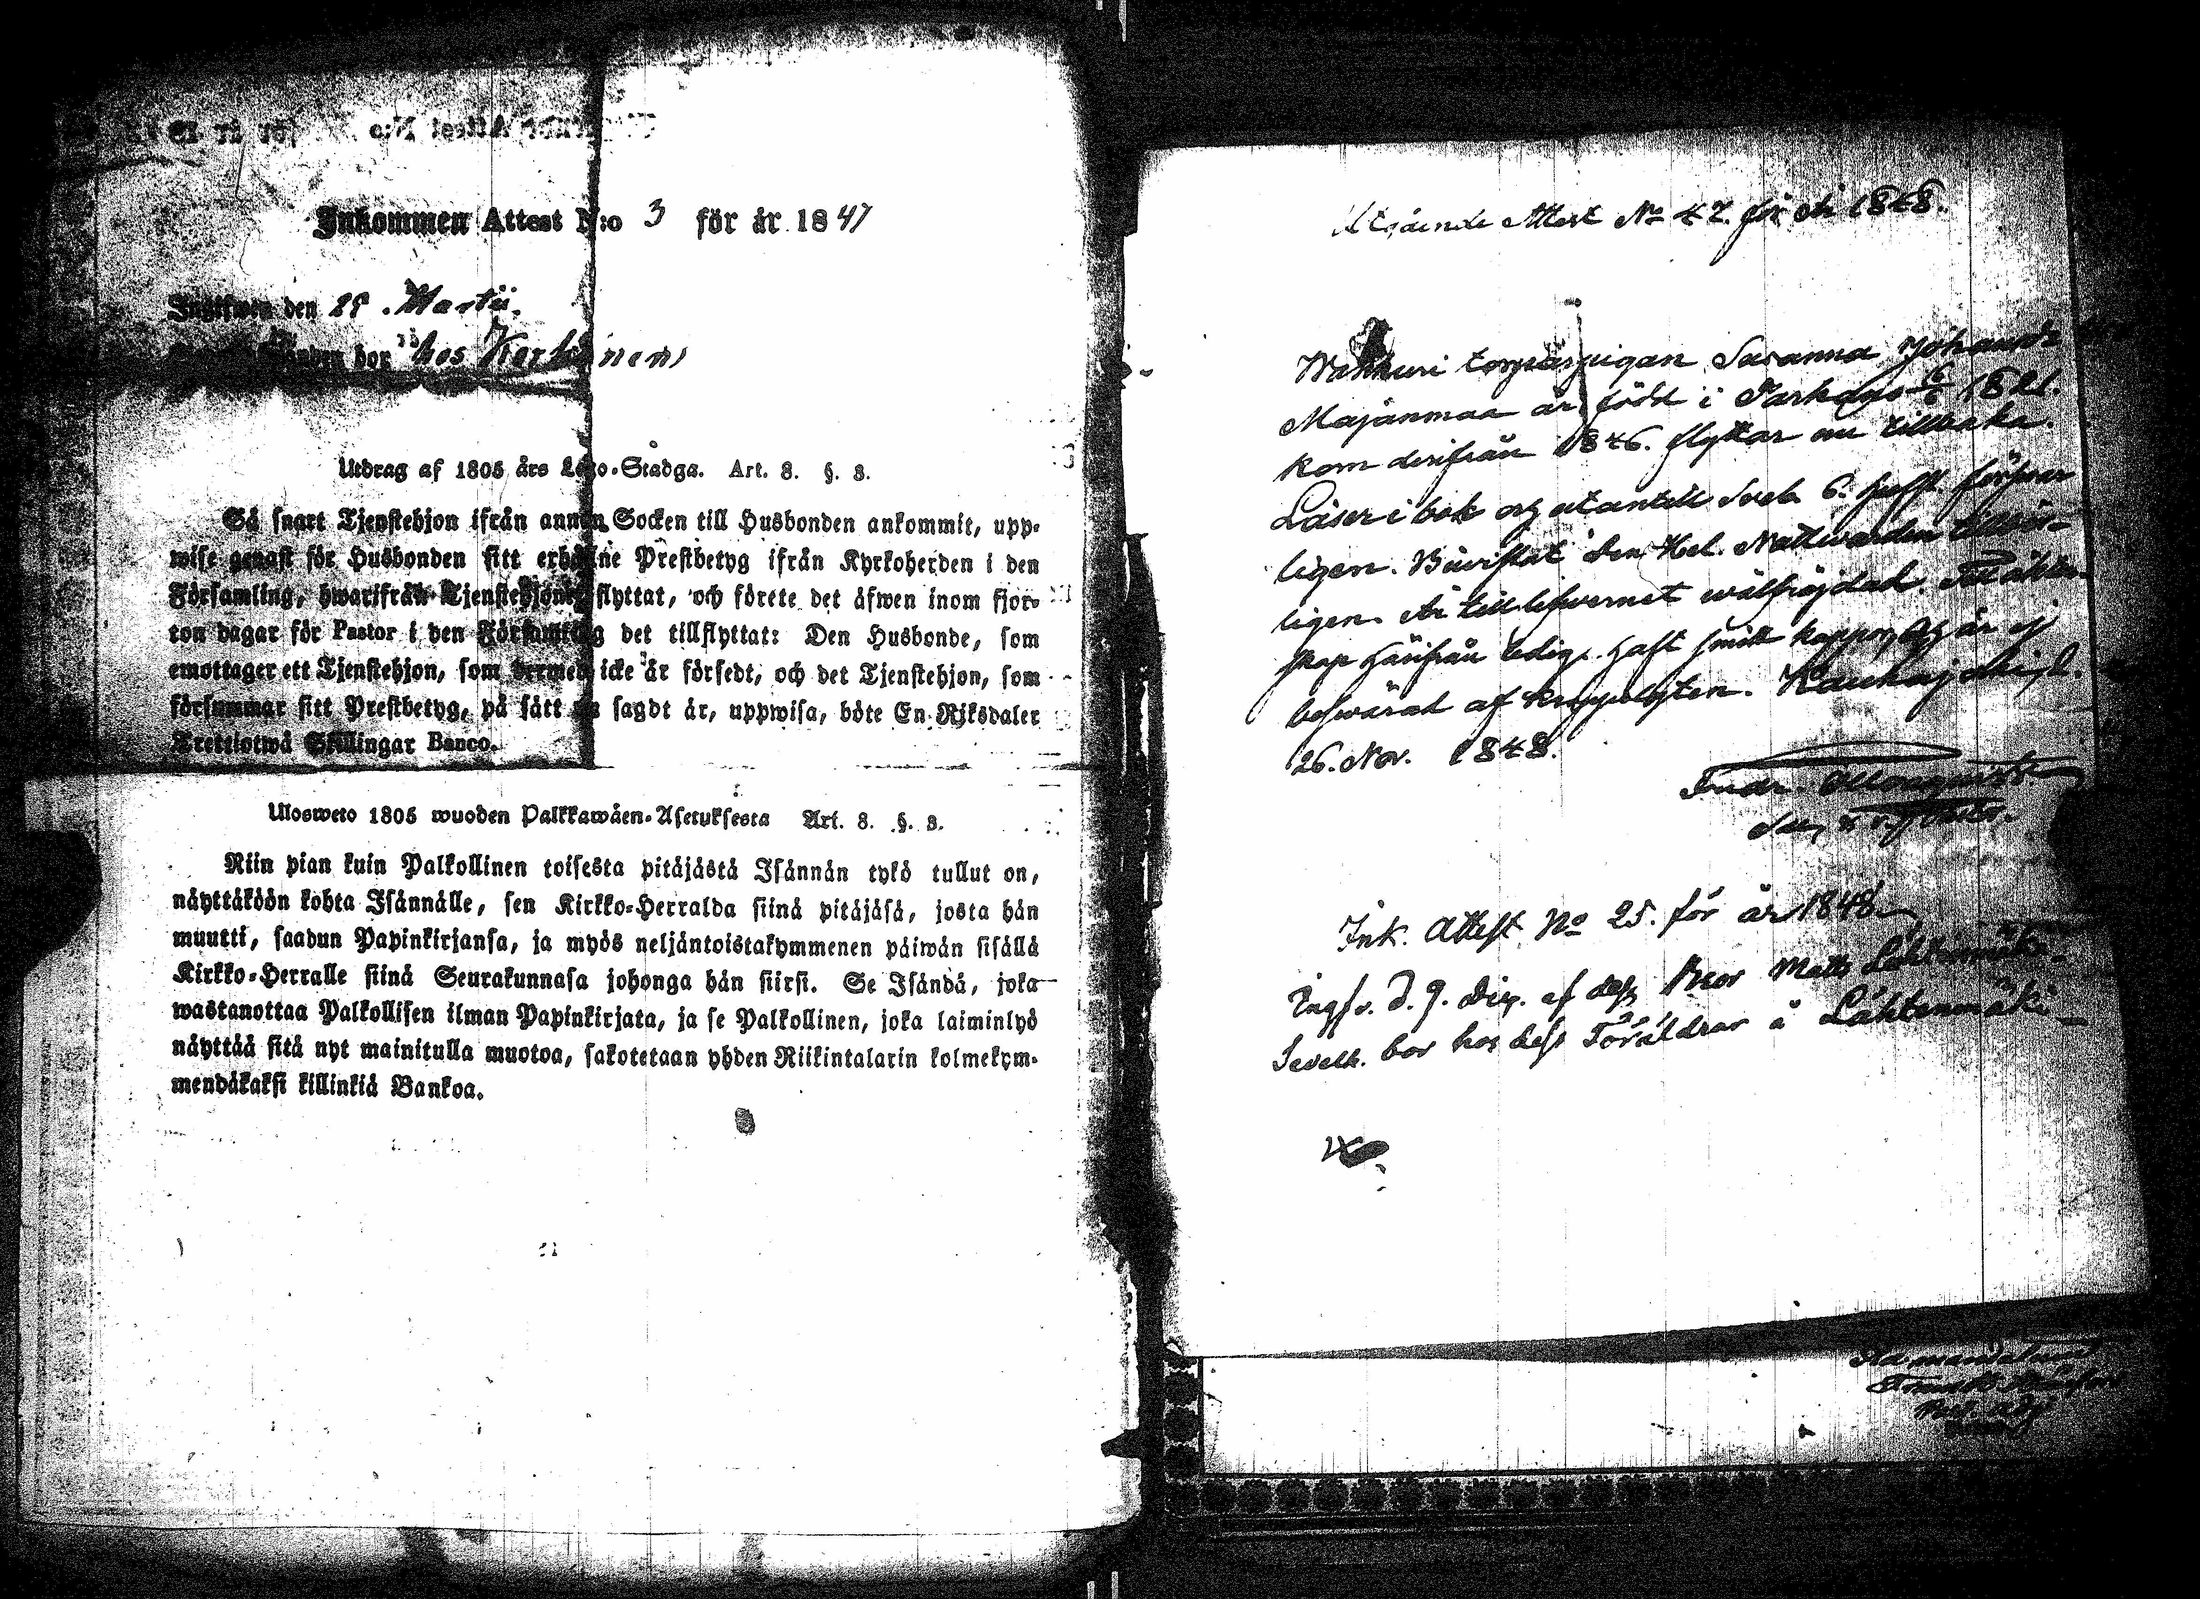 Inkommen Attest N:o 3 för år 1847
Ingifwen den 28 Martii.
bor hos
Utdrag af 1805 års Lego-Stadga. Art. 8. §. 8.
Så snart Tjenstehjon ifrån annan Socken till Husbonden ankommit, upp-
wise genast för Husbonden sitt erhållne Prestbetyg ifrån Kyrkoherden i den
Församling, hwarifrån Tjenstehjonet flyttat, och förete det äfwen inom fjor-
ton dagar för Pastor i den Församling det tillflyttat: Den Husbonde, som
emottager ett Tjenstehjon, som dermed icke är försedt, och det Tjenstehjon, som
försummar sitt Prestbetyg, på sätt nu sagdt är, uppwisa, böte En Riksdaler
Trettiotwå Skillingar Banco.
Ulosweto 1805 wuoden Palkkawäen-Asetuksesta Art. 8. §. 8.
Niin pian kuin Palkollinen toisesta pitäjästä Isännän tykö tullut on,
näyttäköön kohta Isännälle, sen Kirkko-Herralda siinä pitäjäsä, josta hän
muutti, saadun Papinkirjansa, ja myös neljäntoistakymmenen päiwän sisällä
Kirkko-Herralle siinä Seurakunnasa johonga hän siirsi. Se Isändä, joka
wastanottaa Palkollisen ilman Papinkirjata, ja se Palkollinen, joka laiminlyö
näyttää sitä nyt mainitulla muotoa, sakotetaan yhden Riikintalarin kolmekym-
mendäkaksi killinkiä Bankoa.
Utgående Attest No 47. för år 1848.
torparpigan Susanna Johansdr
Majanmaa är född i 6/6 1821.
kom derifrån 1846. flyttar nu tillbaka.
Läser i bok och utantill Sveb. 6. Hufst. förswar
ligen. Biwistat den Hel. Nattwarden
ligen. Är till lefwernet wälfrejdad. Till äkten-
skap härifrån ledig. Haft smitt koppor, och är ej
beswärad af Kauhajoki d.
26. Nov. 1848.
Fredr.
Ink. Attest No 25. för år 1848
Ingfv. d. 9. Dec. af dess Bror Matts Lähtenmäki.
bor hos dess Föräldrar å Lähtenmäki